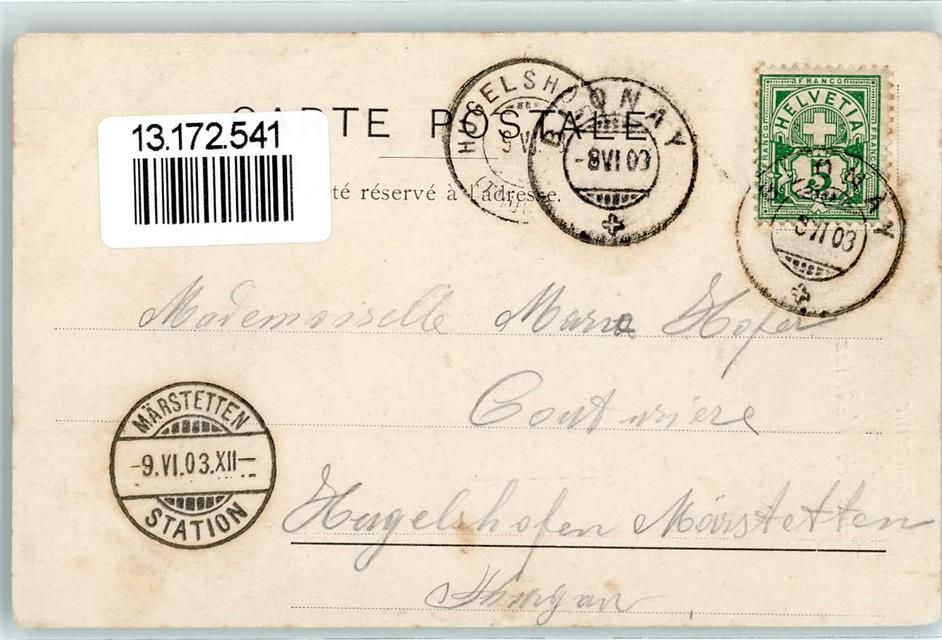 13.172.541
TE POSTALE
té réservé à l'adresse.
HUGELSHO
9 VI
-8 VI 03
FRANCO
FRANCO
FRANCO
HELVETIA
5
8 VI 03
Mademoiselle Marie Hofer
Couturière
Hugelshofen Märstetten
Thurgau
MÄRSTETTEN
-9.VI.03.XII-
STATION